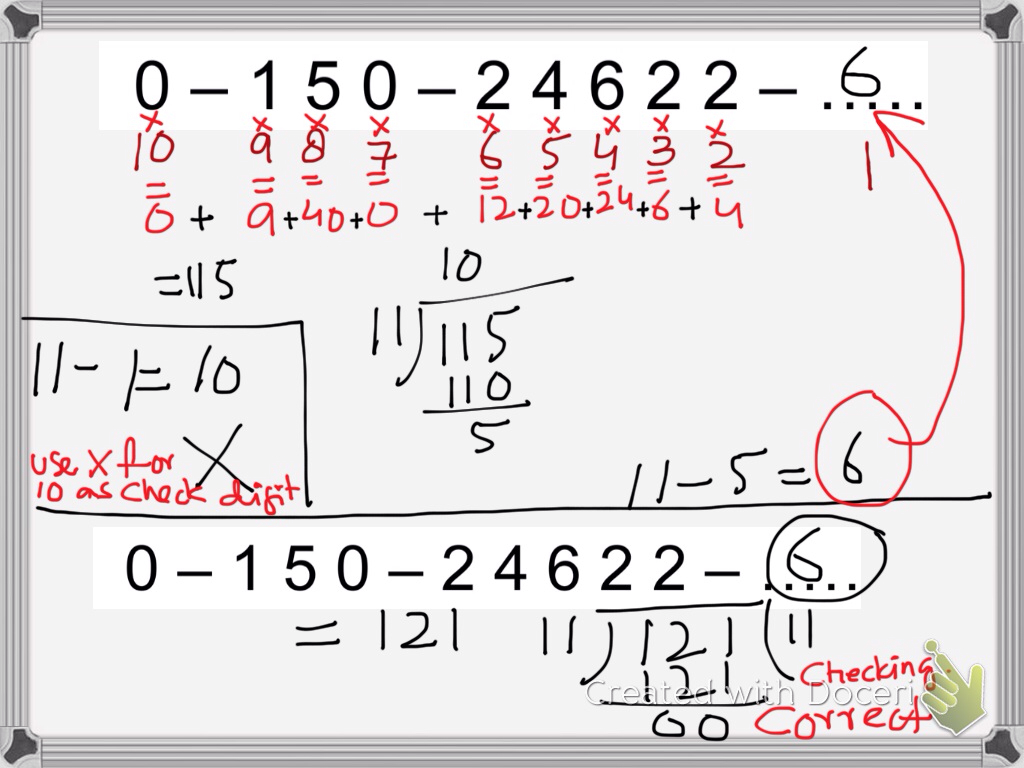 0 – 1 5 0 – 2 4 6 2 2 – ..6...
× × × × × × × × ×
10 9 8 7 6 5 4 3 2 1
= = = = = = = = =
0 + 9 + 40 + 0 + 12 + 20 + 24 + 6 + 4
= 115
10
11)115
110
5
11 - 1 = 10
use X for X
10 as check digit
11 - 5 = 6
0 – 1 5 0 – 2 4 6 2 2 – ..6...
= 121
11)121(11
121
00
Checking.
Correct
Created with Doceri